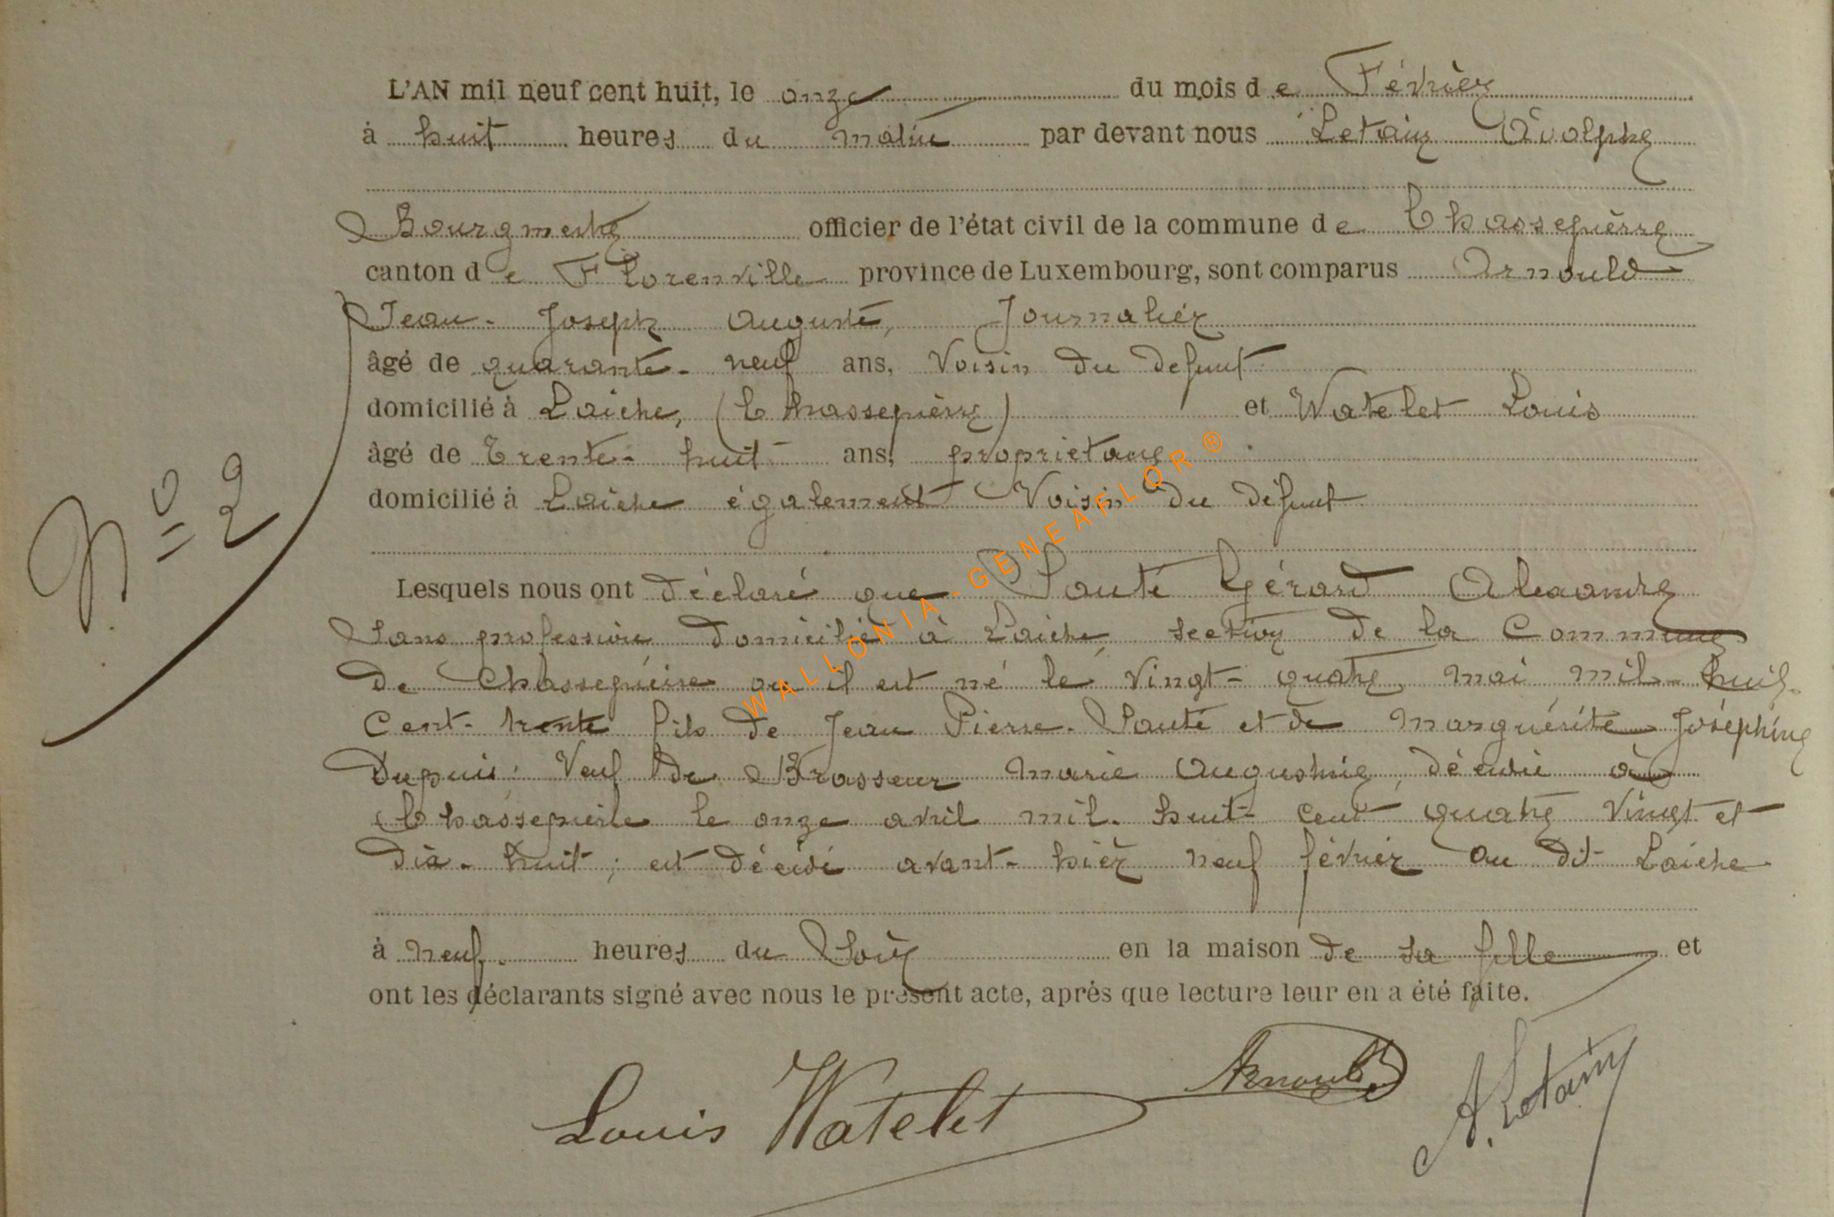 L'AN mil neuf cent huit, le onze du mois de Février
à huit heures du matin par devant nous Letaiy Adolphe
Bourgmestre officier de l'état civil de la commune de Chassepierre
canton de Florenville province de Luxembourg, sont comparus Arnould
Jean-Joseph Auguste, Journalier
âgé de quarante-neuf ans, Voisin du defunt
domicilié à Laiche, (Chassepierre) et Watelet Louis
âgé de Trente-huit ans, proprietaire
N° 2
domicilié à Laiche également Voisin du défunt
Lesquels nous ont déclaré que Santé Gérard Alexandre
sans profession domicilié à Laiche, section de la Commune
de Chassepierre ou il est né le vingt-quatre mai mil-huit-
cent-trente fils de Jean Pierre Santé et de Marguérite Joséphine
Dupuis; Veuf de Brasseur Marie Augustine, décédée à
Chassepierre le onze avril mil-huit-cent quatre vingt et
dix-huit; est décédé avant-hier neuf février au dit Laiche
à neuf heures du soir en la maison de sa fille et
ont les déclarants signé avec nous le présent acte, après que lecture leur en a été faite.
Louis Watelet Arnould A. Letaiy
WALLONIA-GENEAFLOR®